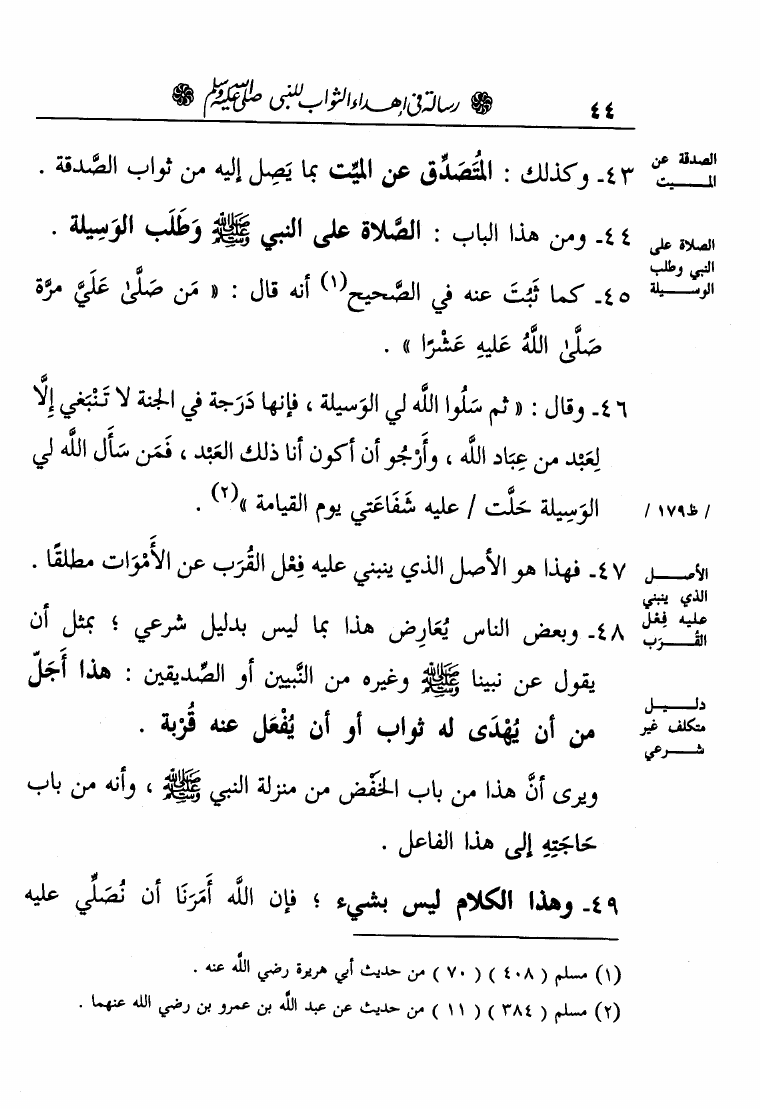 ٤٤ رسالة في إهداء الثواب للنبي صلى الله عليه وسلم
الصدقة عن
الميت
٤٣ـ وكذلك : المُتَصَدِّق عن الميِّت بما يَصِل إليه من ثواب الصَّدقة .
الصلاة على
النبي وطلب
الوسيلة
٤٤ـ ومن هذا الباب : الصَّلاة على النبي ﷺ وَطَلَب الوَسِيلة .
٤٥ـ كما ثَبُتَ عنه في الصَّحيح(١) أنه قال : « مَن صَلَّىٰ عَلَيَّ مرَّة
صَلَّىٰ اللَّهُ عَليهِ عَشْرًا » .
٤٦ـ وقال : « ثم سَلُوا اللَّه لي الوَسيلة ، فإنها دَرَجة في الجنة لا تَنْبَغي إِلَّا
لِعَبْد من عِبَاد اللَّه ، وأَرْجُو أن أكون أنا ذلك العَبْد ، فَمَن سَأَل اللَّه لي
الوَسِيلة حَلَّت / عليه شَفَاعَتي يوم القيامة »(٢) .
/ ظ١٧٩ /
الأصل
الذي ينبني
عليه فِعْل
القُرَب
٤٧ـ فهذا هو الأصل الذي ينبني عليه فِعْل القُرَب عن الأَمْوَات مطلقًا .
٤٨ـ وبعض الناس يُعَارِض هذا بما ليس بدليل شرعي ؛ بمثل أن
يقول عن نبينا ﷺ وغيره من النَّبيين أو الصِّديقين : هذا أَجَلّ
من أن يُهْدَى له ثواب أو أن يُفْعَل عنه قُرْبة .
دليل
متكلف غير
شرعي
ويرى أنَّ هذا من باب الخَفْض من منزلة النبي ﷺ ، وأنه من باب
حَاجَتِهِ إلى هذا الفاعل .
٤٩ـ وهذا الكلام ليس بشيء ؛ فإن اللَّه أَمَرَنَا أن نُصَلِّي عليه
(١) مسلم ( ٤٠٨ ) ( ٧٠ ) من حديث أبي هريرة رضي اللَّه عنه .
(٢) مسلم ( ٣٨٤ ) ( ١١ ) من حديث عن عبد اللَّه بن عمرو بن رضي الله عنهما .